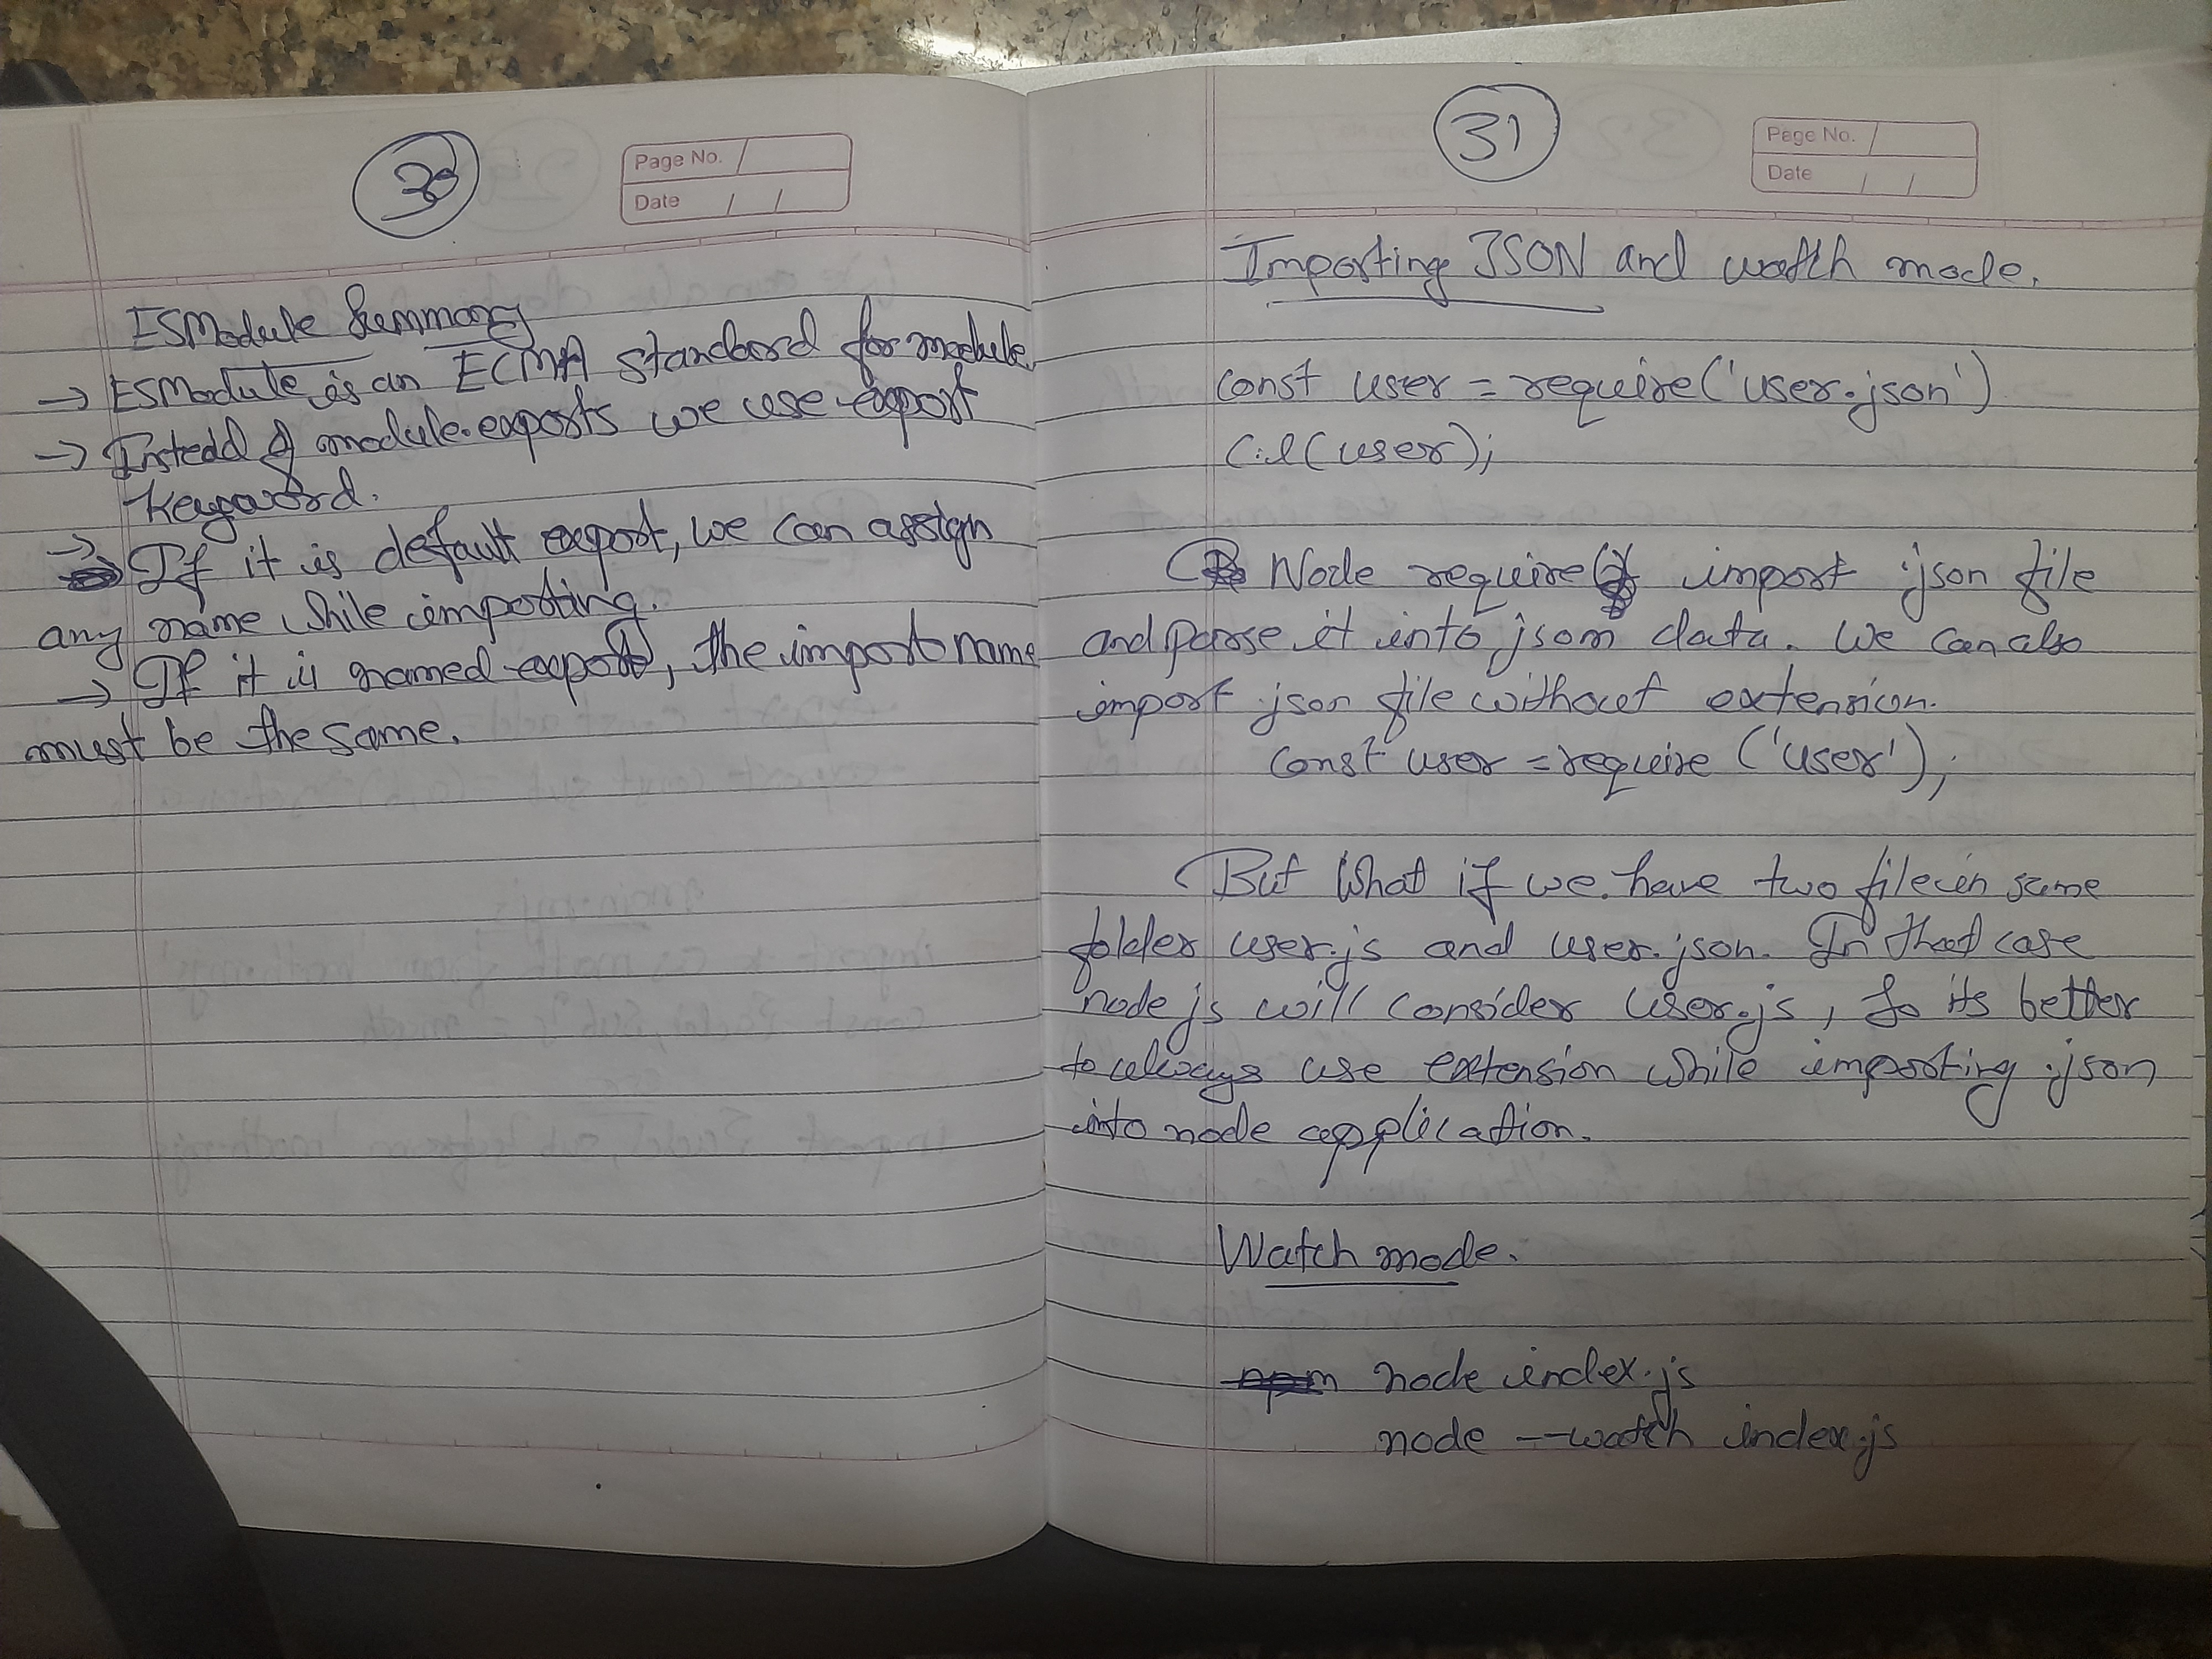 30
Page No.
Date / /
ESModule Summary
→ ESModule is an ECMA standard for module
→ Instead of module.exports we use export
keyword.
→ If it is default export, we can assign
any name while importing.
→ If it is named export, the import name
must be the same.
31
Page No.
Date / /
Importing JSON and watch mode.
const user = require('user.json')
C.l(user);
Node require import .json file
and parse it into json data. We can also
import json file without extension.
const user = require ('user');
But What if we have two file in same
folder user.js and user.json. In that case
node js will consider user.js, So its better
to always use extension while importing .json
into node application.
Watch mode.
npm node index.js
node --watch index.js